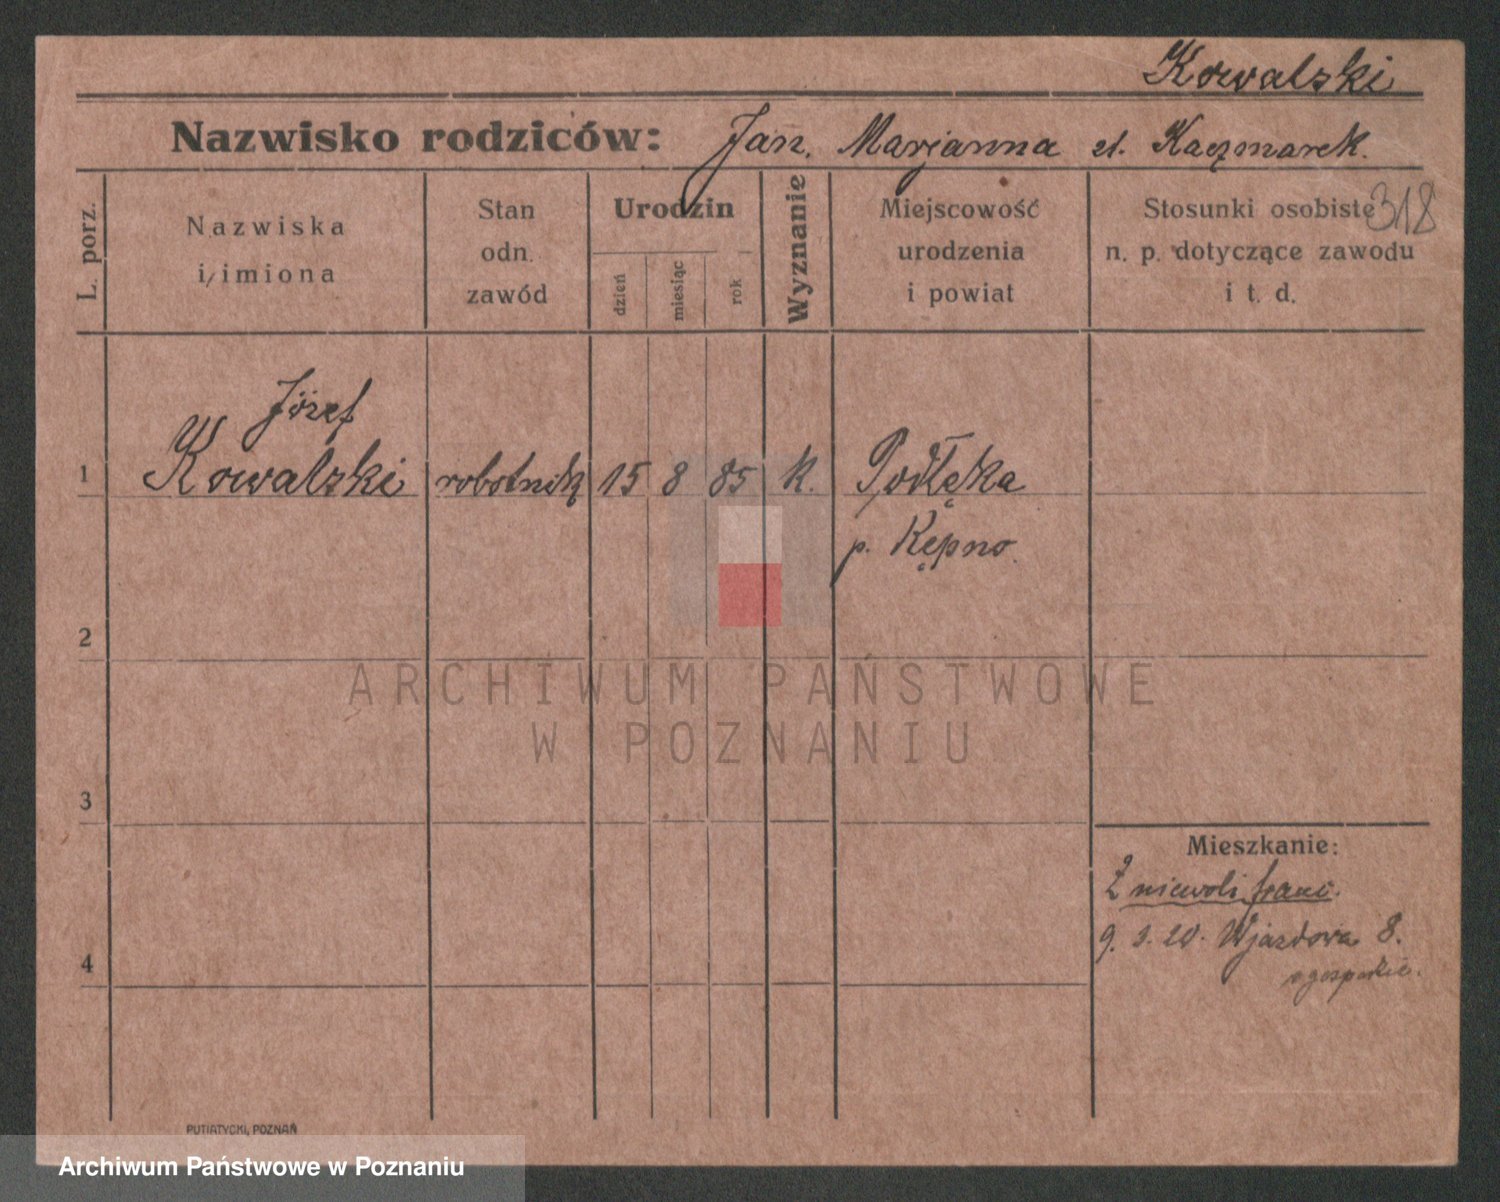 Kowalski
Nazwisko rodziców: Jan. Marjanna z d. Kaczmarek.
318
L. porz.
Nazwiska
i imiona
Stan
odn.
zawód
Urodzin
dzień
miesiąc
rok
Wyznanie
Miejscowość
urodzenia
i powiat
Stosunki osobiste
n. p. dotyczące zawodu
i t. d.
Józef
1 Kowalski robotnik 15 8 85 k. Podłęka
p. Kępno.
2
ARCHIWUM PAŃSTWOWE
W POZNANIU
3
Mieszkanie:
Z niewoli franc.
9. 3. 20. Wjazdowa 8.
4
PUTIATYCKI, POZNAŃ
Archiwum Państwowe w Poznaniu